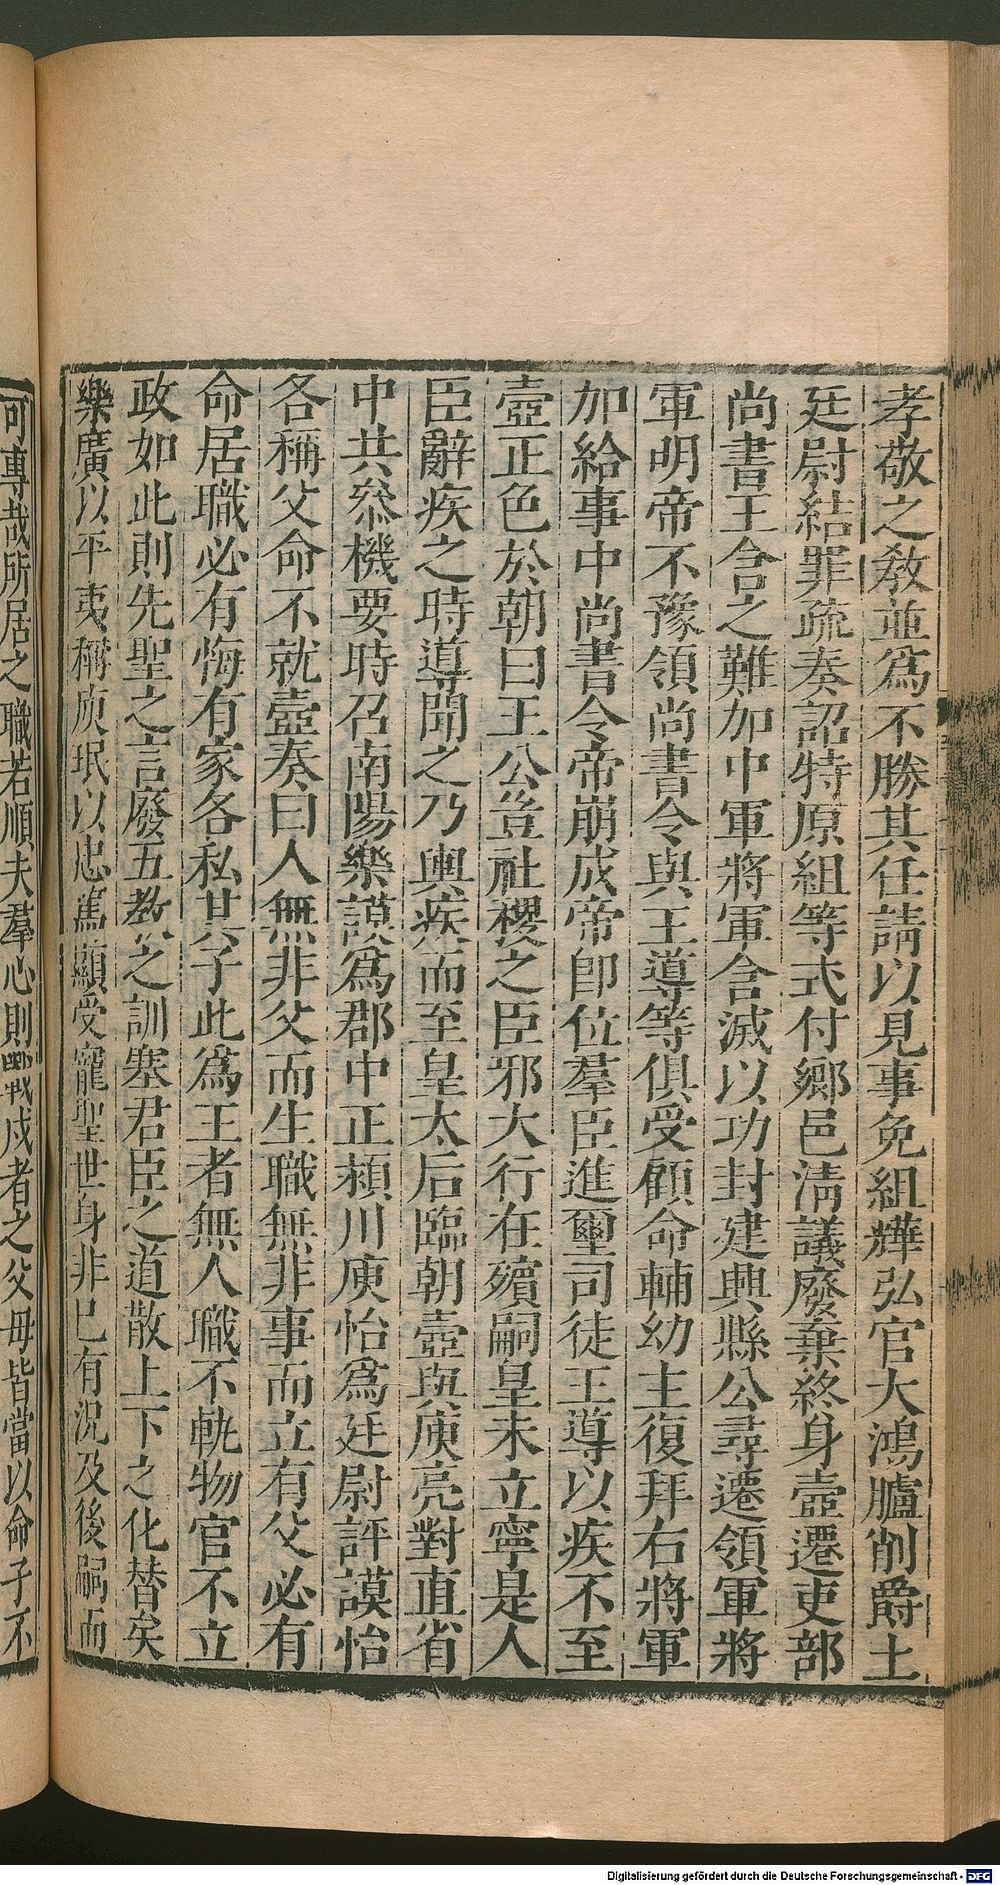 孝敬之敎並爲不勝其任請以見事免組𤒡弘官大鴻臚削爵土
廷尉結罪疏奏詔特原組等式付鄉邑淸議廢棄終身壼遷吏部
尚書王含之難加中軍將軍含滅以功封建興縣公尋遷領軍將
軍明帝不豫領尚書令與王導等俱受顧命輔幼主復拜右將軍
加給事中尚書令帝崩成帝卽位羣臣進璽司徒王導以疾不至
壼正色於朝曰王公豈社稷之臣邪大行在殯嗣皇未立寧是人
臣辭疾之時導聞之乃輿疾而至皇太后臨朝壼與庾亮對直省
中共叅機要時召南陽樂謨爲郡中正潁川庾怡爲廷尉評謨怡
各稱父命不就壼奏曰人無非父而生職無非事而立有父必有
命居職必有悔有家各私其子此爲王者無人職不軌物官不立
政如此則先聖之言廢五敎之訓塞君臣之道散上下之化替矣
樂廣以平夷稱庾珉以忠篤顯受寵聖世身非已有況及後嗣而
可專哉所居之職若順夫羣心則戰戍者之父母皆當以命子不
Digitalisierung gefördert durch die Deutsche Forschungsgemeinschaft - DFG